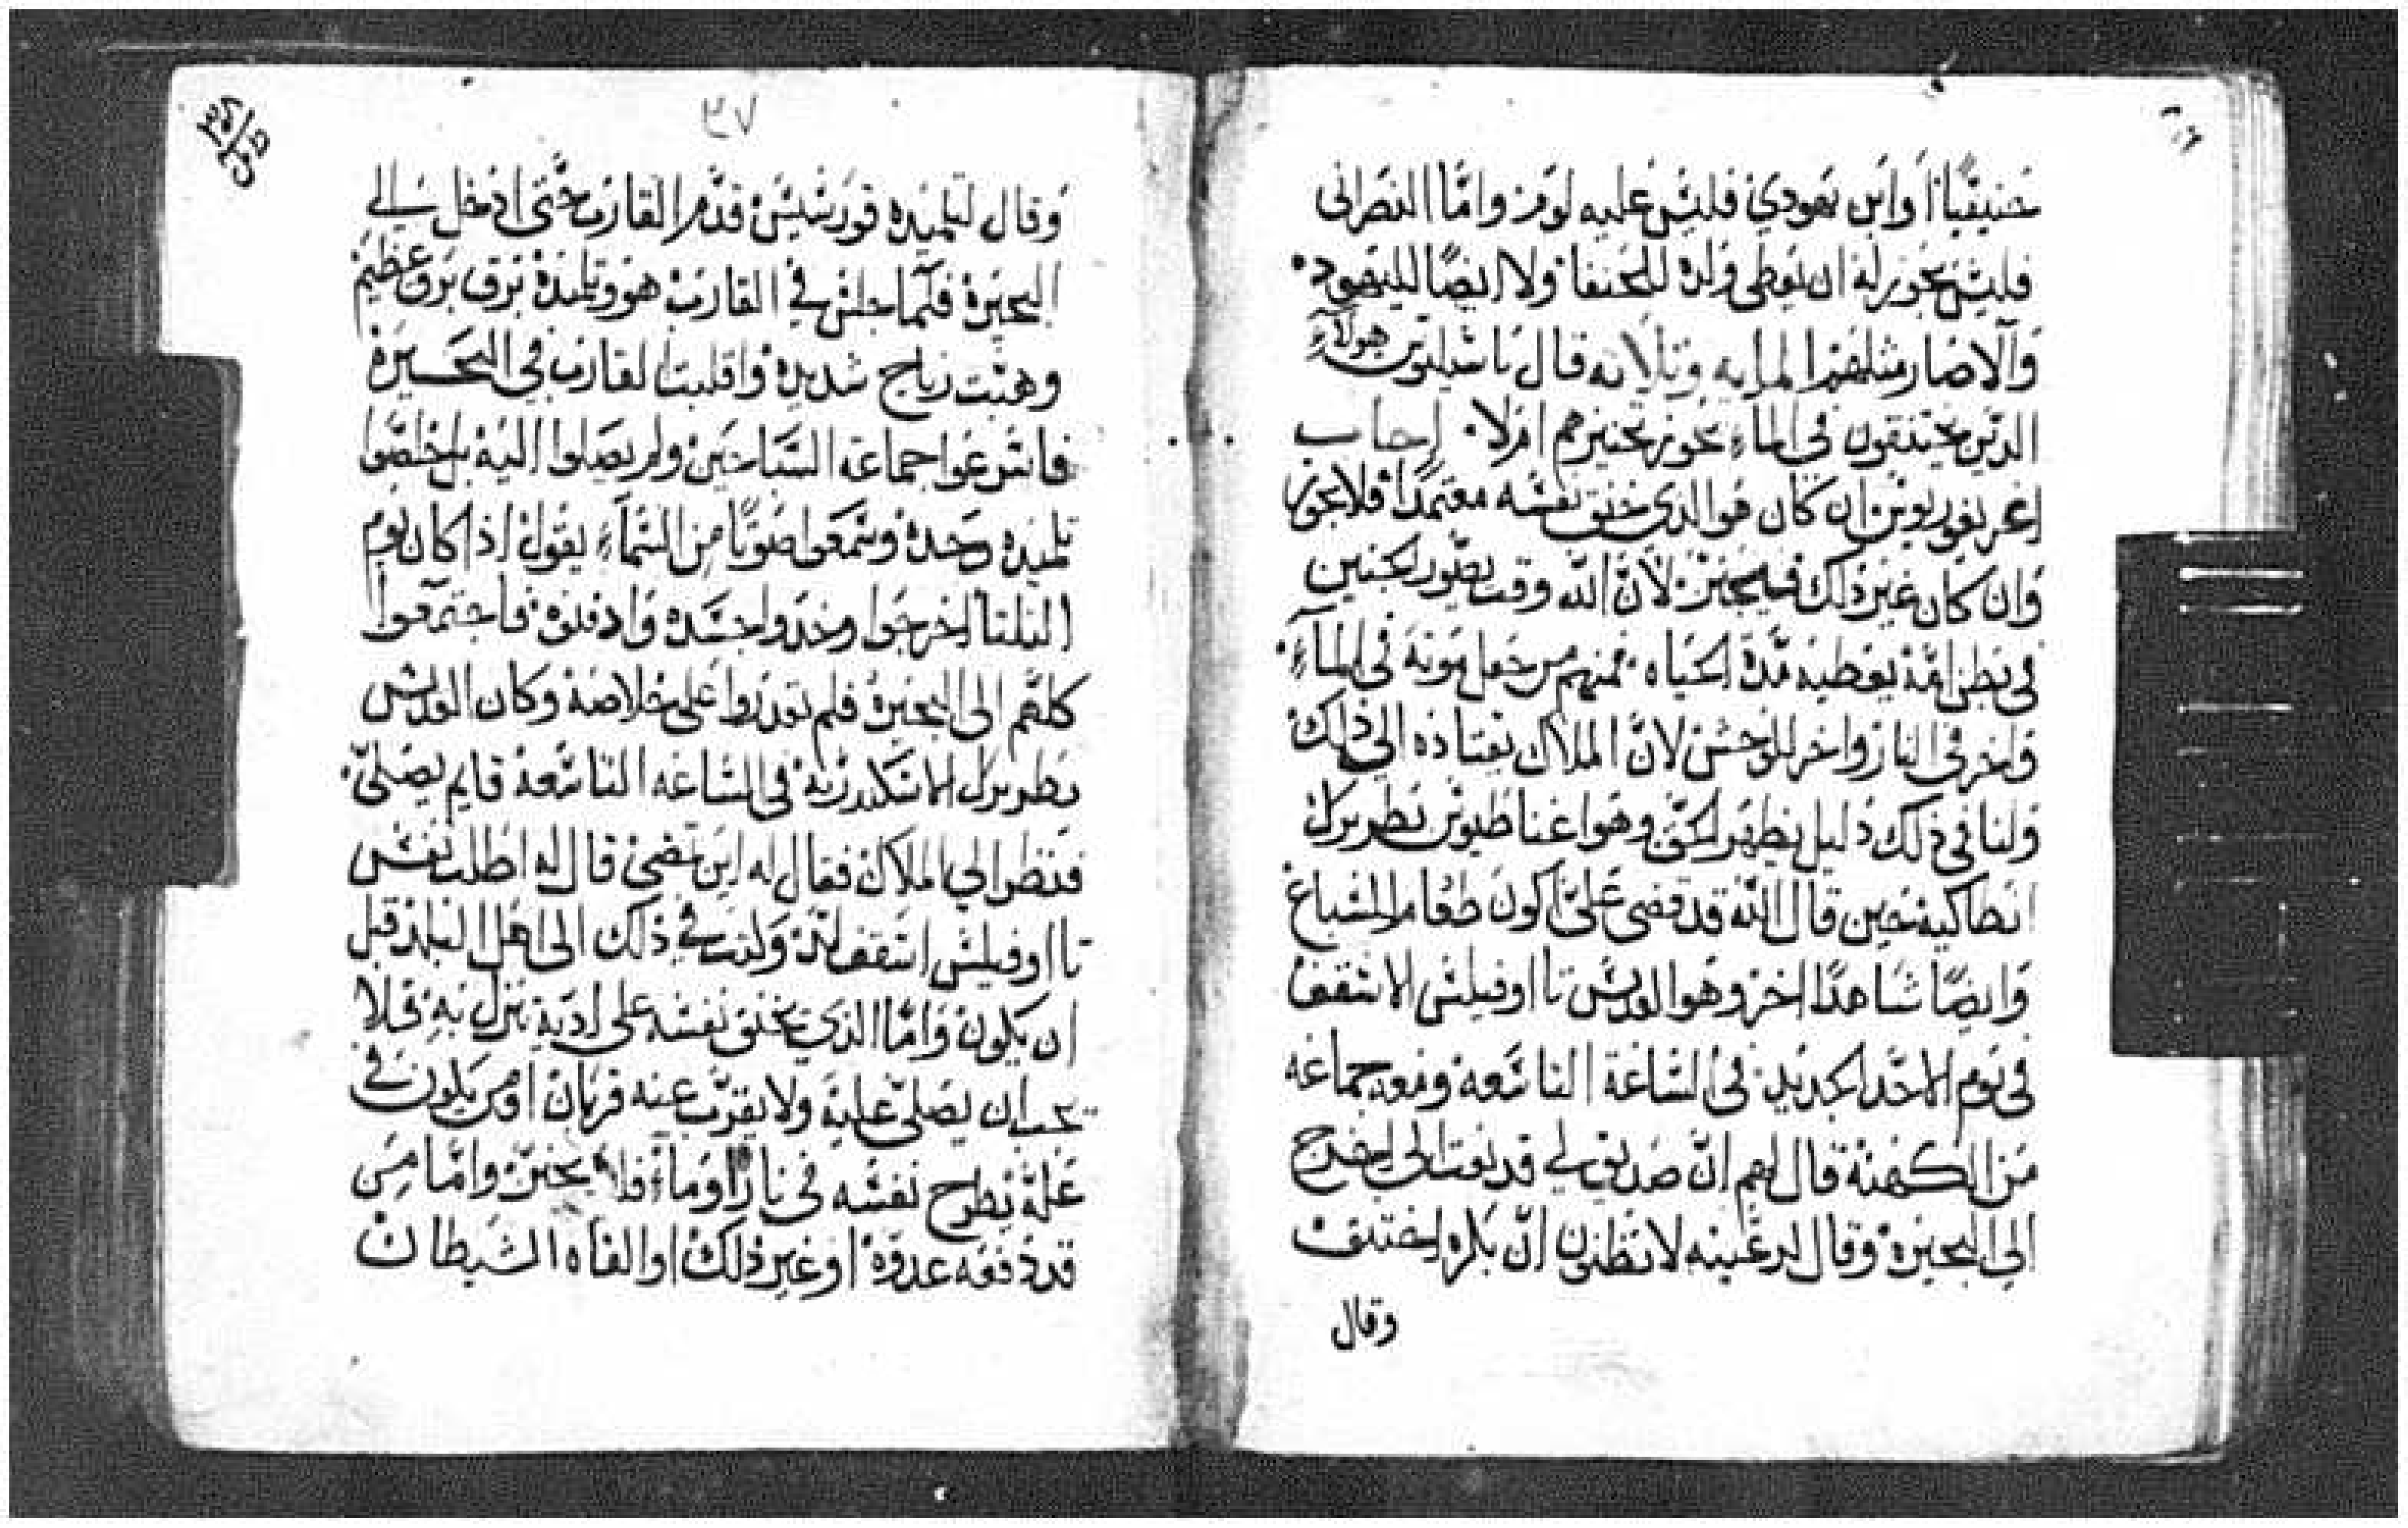 حنيفيًا او ابن يهودي فليس عليه لوم واما النصراني
فليس يجوز له ان يعطي ولده للحنفا ولا ايضًا لليهود
والاصار مثلهم المايه وثلاثه قال باسيليوس هولاء
الذين يختنقون في الماء يجوز تجنيزهم ام لا اجاب
اغريغوريوس ان كان هو الذي خنق نفسه معتمدًا فلا يجوز
وان كان غير ذلك فيجنز لان الله وقت يصور الجنين
في بطن امه يعطيه مدة الحياه فمنهم من جعل موته في الماء
واخر في النار واخر للوحش لان الملاك يقتاده الي ذلك
ولنا في ذلك دليل يظهر الحق وهو اغناطيوس بطريرك
انطاكيه حين قال الله قد قضي علي اكون طعام السباع
وايضًا شاهدًا اخر وهو القديس تااوفيلس الاسقف
في يوم الاحد الجديد في الساعة التاسعه ومعه جماعه
من الكهنة قال لهم ان صديق لي قد بعت الي لاخرج
الي البحيره وقال لرعيته لا تظنون ان بكره اختنق
وقال
٣٧
وقال لتلميذه قورنيليس قدم القارب حتي ادخل الي
البحيره فلما جلس في القارب هو وتلميذه برق برق عظيم
وهبت رياح شديده واقلبت القارب في البحيره
فاسرعوا جماعة السباحين ولم يصلوا اليه بل خلصوا
تلميذه وحده وسمعوا صوتًا من السماء يقول اذا كان يوم
التلتا اخرجوا وخدوا جسده وادفنوه فاجتمعوا
كلهم الي البحيره فلم يقدروا علي خلاصه وكان القديس
بطريرك الاسكندريه في الساعه التاسعه قايم يصلي
فنظر الي الملاك فقال له اين تمضي قال له اطلب نفس
تااوفيلس اسقف لانه ولنت في ذلك الي اهل البلد قبل
ان يكون واما الذي يخنق نفسه علي اديه تنزل به فلا
يجب ان يصلي عليه ولا يقرب عنه قربان او من يكون في
علة يطرح نفسه في نار او ماء فلا يجنز واما من
قد دفعه عدوه او غير ذلك او القاه الشيطان